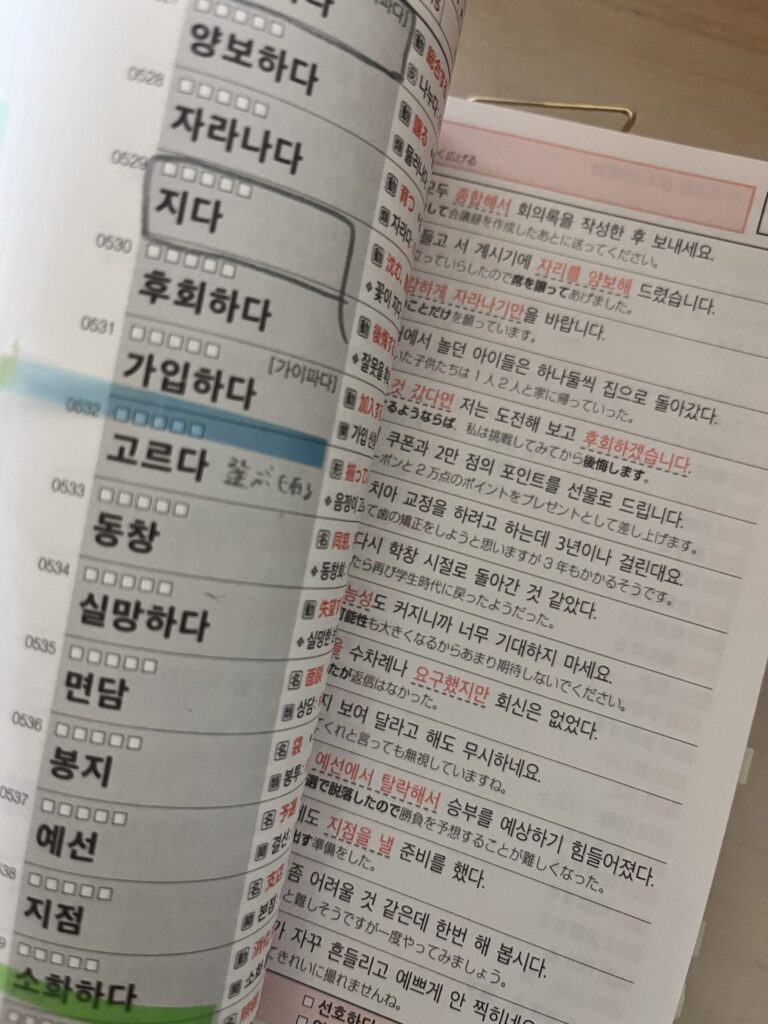 양보하다
動 譲る
0528
자라나다
動 育つ
0529
지다
動 沈む
0530
후회하다
0531
가입하다 [가이파다]
0532
고르다
0533
동창
0534
실망하다
動 失望
0535
면담
名 面談
0536
봉지
名 袋
0537
예선
名 予選
지점
名 支店
소화하다
く広げる
종합해서 회의록을 작성한 후 보내세요.
して会議録を作成したあとに送ってください。
들고 서 계시기에 자리를 양보해 드렸습니다.
立っていらしたので席を譲ってあげました。
자라나기만을 바랍니다.
ことだけを願っています。
에서 놀던 아이들은 하나둘씩 집으로 돌아갔다.
いた子供たちは1人2人と家に帰っていった。
것 같다면 저는 도전해 보고 후회하겠습니다.
るようならば、私は挑戦してみてから後悔します。
쿠폰과 2만 점의 포인트를 선물로 드립니다.
ーポンと2万点のポイントをプレゼントとして差し上げます。
치아 교정을 하려고 하는데 3년이나 걸린대요.
て歯の矯正をしようと思いますが3年もかかるそうです。
다시 학창 시절로 돌아간 것 같았다.
たら再び学生時代に戻ったようだった。
능성도 커지니까 너무 기대하지 마세요.
可能性も大きくなるからあまり期待しないでください。
수차례나 요구했지만 회신은 없었다.
たが返信はなかった。
보여 달라고 해도 무시하네요.
くれと言っても無視していますね。
예선에서 탈락해서 승부를 예상하기 힘들어졌다.
選で脱落したので勝負を予想することが難しくなった。
에도 지점을 낼 준비를 했다.
出す準備をした。
좀 어려울 것 같은데 한번 해 봅시다.
と難しそうですが一度やってみましょう。
가 자꾸 흔들리고 예쁘게 안 찍히네요.
きれいに撮れませんね。
선호하다